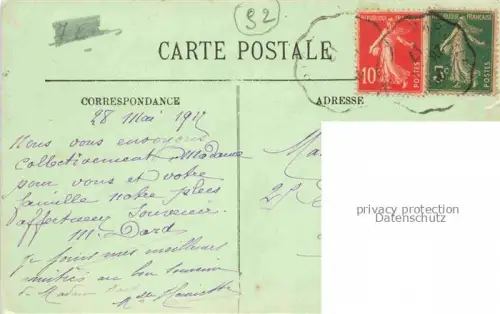 52
CARTE POSTALE
REPUBLIQUE FRANÇAISE
10c
POSTES
REPUBLIQUE FRANÇAISE
5c
POSTES
CORRESPONDANCE
28 Mai 1917
Nous vous envoyons
collectivement Madame
pour vous et votre
famille notre plus
affectueux souvenir
M. Dard
Je joins mes meilleurs
amitiés au bon souvenir
de Madame Dard
Henriette
ADRESSE
Ma
25
privacy protection
Datenschutz